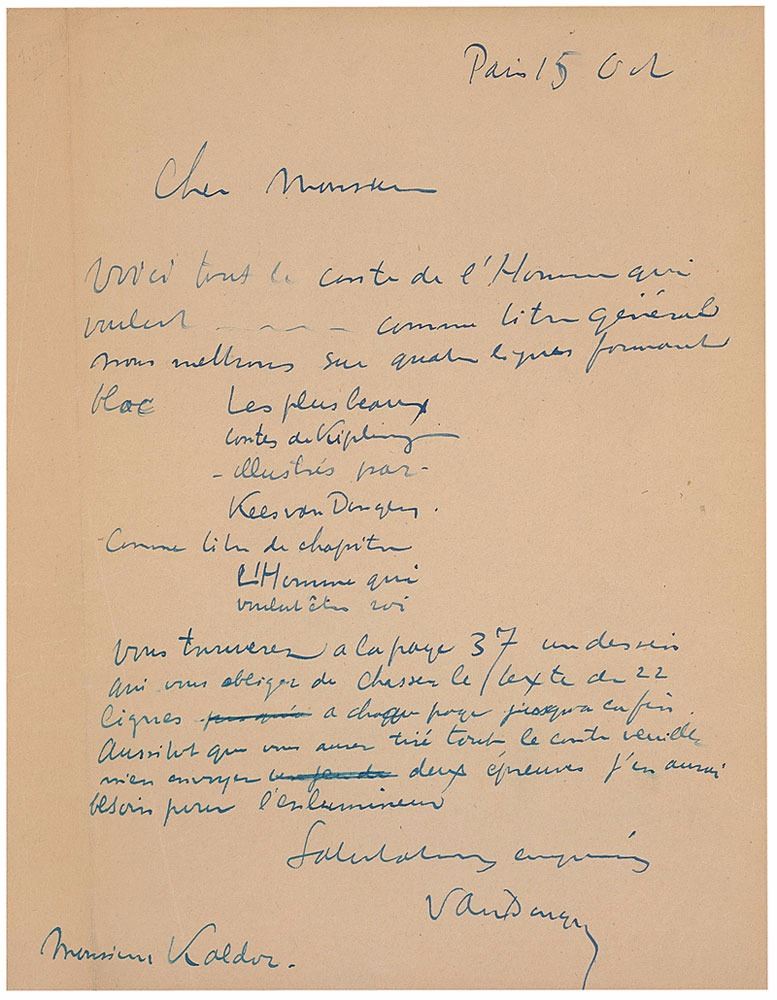 Paris 15 Oct
Cher Monsieur
Voici tout le conte de l'Homme qui
voulut — — — comme titre général
nous mettrons sur quatre lignes formant
bloc Les plus beaux
contes de Kipling
- illustrés par -
Kees van Dongen.
Comme titre de chapitre
L'Homme qui
voulut être roi
Vous trouverez a la page 37 un dessin
qui vous obliger de chasser le texte de 22
lignes a chaque page jusqu'a en fin
Aussitot que vous aurez tiré tout le conte veuillez
m'en envoyer deux épreuves j'en aurai
besoin pour l'enlumineur
Salutations
Van Dongen
Monsieur Kaldor.